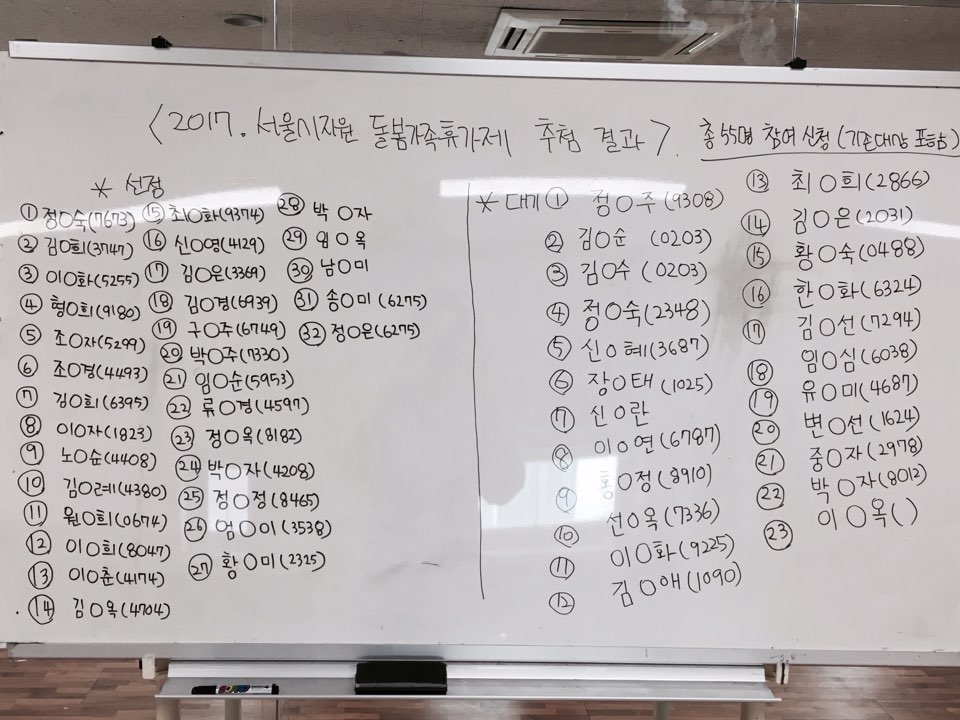 <2017. 서울시지원 돌봄가족휴가제 추첨 결과>.
총 55명 참여 신청 (기존대상 포함)
* 선정
① 정○숙(7673)
② 김○희(3747)
③ 이○화(5255)
④ 형○희(9180)
⑤ 조○자(5299)
⑥ 조○경(4493)
⑦ 김○희(6395)
⑧ 이○자(1823)
⑨ 노○순(4408)
⑩ 김○례(4380)
⑪ 원○희(0674)
⑫ 이○희(8047)
⑬ 이○춘(4174)
⑭ 김○옥(4704)
⑮ 최○화(9374)
⑯ 신○영(4129)
⑰ 김○은(3369)
⑱ 김○경(6939)
⑲ 구○주(6749)
⑳ 박○주(7330)
㉑ 임○순(5953)
㉒ 류○경(4597)
㉓ 정○옥(8182)
㉔ 박○자(4208)
㉕ 정○정(8465)
㉖ 엄○이(3538)
㉗ 황○미(2325)
㉘ 박○자
㉙ 임○옥
㉚ 남○미
㉛ 송○미(6275)
㉜ 정○은(6275)
* 대기 ① 정○주(9308)
② 김○순 (0203)
③ 김○수 (0203)
④ 정○숙(2348)
⑤ 신○혜(3687)
⑥ 장○태(1025)
⑦ 신○란
⑧ 이○연(6787)
⑨ 홍○정(8910)
⑩ 선○옥(7336)
⑪ 이○화(9225)
⑫ 김○애(1090)
⑬ 최○희(2866)
⑭ 김○은(2031)
⑮ 황○숙(0488)
⑯ 한○화(6324)
⑰ 김○선(7294)
⑱ 임○심(6038)
⑲ 유○미(4687)
⑳ 변○선(1624)
㉑ 중○자(2978)
㉒ 박○자(8012)
㉓ 이○옥( )